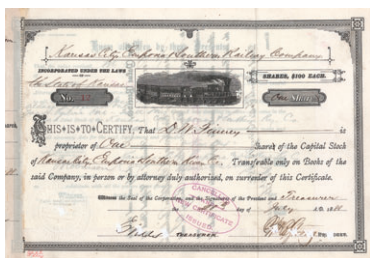 Kansas City Emporia & Southern Railway Company
INCORPORATED UNDER THE LAWS
OF
The State of Kansas
SHARES, $100 EACH.
No.
One Share
THIS IS TO CERTIFY, That D. W. Finney is
proprietor of One Share of the Capital Stock
of Kansas City Emporia & Southern Transferable only on Books of the
said Company, in person or by attorney duly authorized, on surrender of this Certificate.
Witness the Seal of the Corporation, and the Signatures of the President and Treasurer
July
CANCELLED
CERTIFICATE
ISSUED
TREASURER